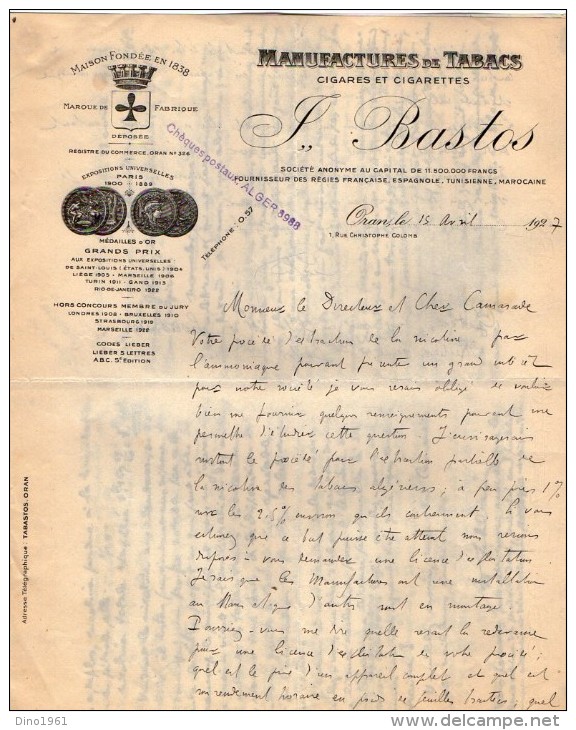 MAISON FONDÉE EN 1838
MARQUE DE FABRIQUE
DÉPOSÉE
REGISTRE DU COMMERCE, ORAN Nº 326
EXPOSITIONS UNIVERSELLES
PARIS
1900 - 1889
MÉDAILLES D'OR
GRANDS PRIX
AUX EXPOSITIONS UNIVERSELLES
DE SAINT-LOUIS (ÉTATS, UNIS) 1904
LIÉGE 1905 - MARSEILLE 1906
TURIN 1911 - GAND 1913
RIO-DE-JANEIRO 1922
HORS CONCOURS MEMBRE DU JURY
LONDRES 1908 - BRUXELLES 1910
STRASBOURG 1919
MARSEILLE 1922
CODES LIEBER
LIEBER 5 LETTRES
A.B.C. 5e ÉDITION
Adresse Télégraphique : TABASTOS, ORAN
MANUFACTURES DE TABACS
CIGARES ET CIGARETTES
J. Bastos
SOCIÉTÉ ANONYME AU CAPITAL DE 11.500.000 FRANCS
FOURNISSEUR DES RÉGIES FRANÇAISE, ESPAGNOLE, TUNISIENNE, MAROCAINE
Chèques postaux: ALGER 3988
TÉLÉPHONE : 0.57
Oran, le 15 Avril 1927
1, RUE CHRISTOPHE COLOMB
Monsieur le Directeur et Cher Camarade
Votre procédé d'extraction de la nicotine par
l'ammoniaque pouvant présenter un grand intérêt
pour notre société je vous serais obligé de vouloir
bien me fournir quelques renseignements pouvant me
permettre d'étudier cette question. J'envisagerais
surtout le procédé pour l'extraction partielle de
la nicotine des tabacs algériens; à peu près 1%
sur les 2.5% environ qu'ils contiennent. Si vous
estimez que ce but puisse être atteint nous serions
disposés à vous demander une licence d'exploitation.
Je sais que les Manufactures ont une installation
au Mans et que d'autres sont en montage.
Pourriez-vous me dire quelle serait la redevance
pour une licence d'exploitation de votre procédé;
quel est le prix d'un appareil complet et quel est
son rendement horaire en poids de feuilles traitées; quel
Dino1961
delcampe.net